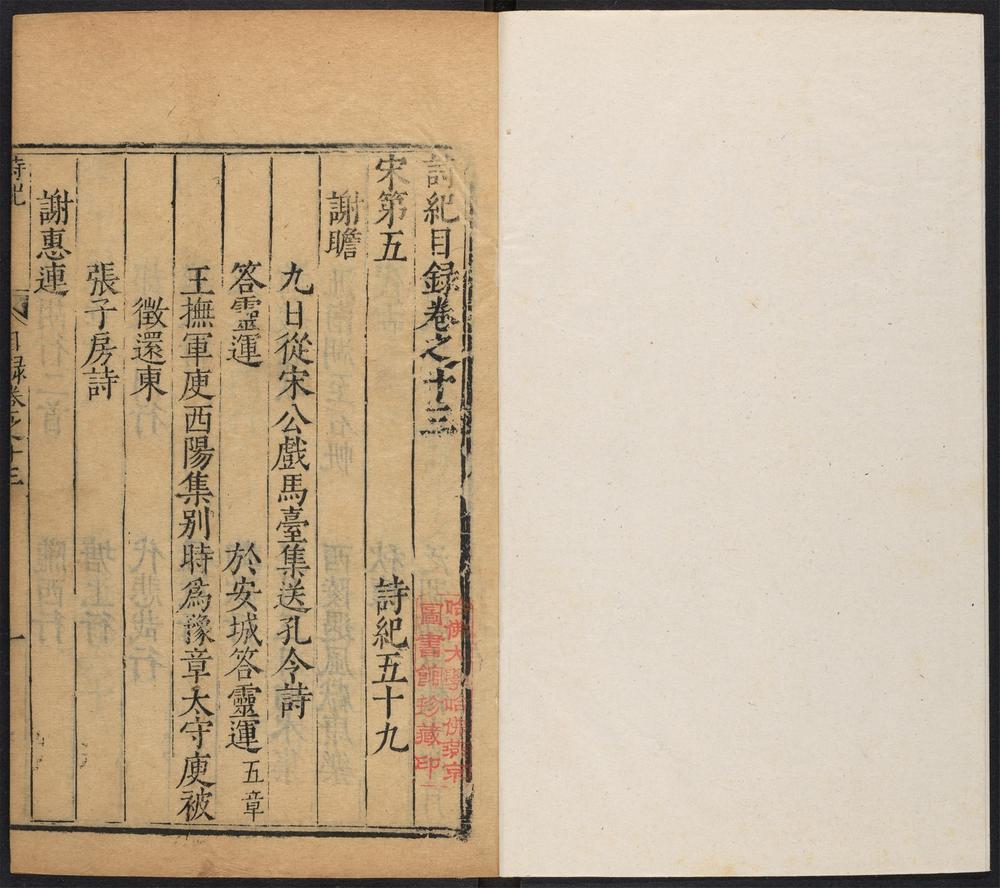 詩紀目録卷之十三
宋第五　詩紀五十九
謝瞻
九日從宋公戲馬臺集送孔令詩
答靈運　於安城答靈運五章
王撫軍庾西陽集别時為豫章太守庾被
徵還東
張子房詩
謝惠連
詩紀　目録卷之十三　一
哈佛大學哈佛燕京
圖書館珍藏印